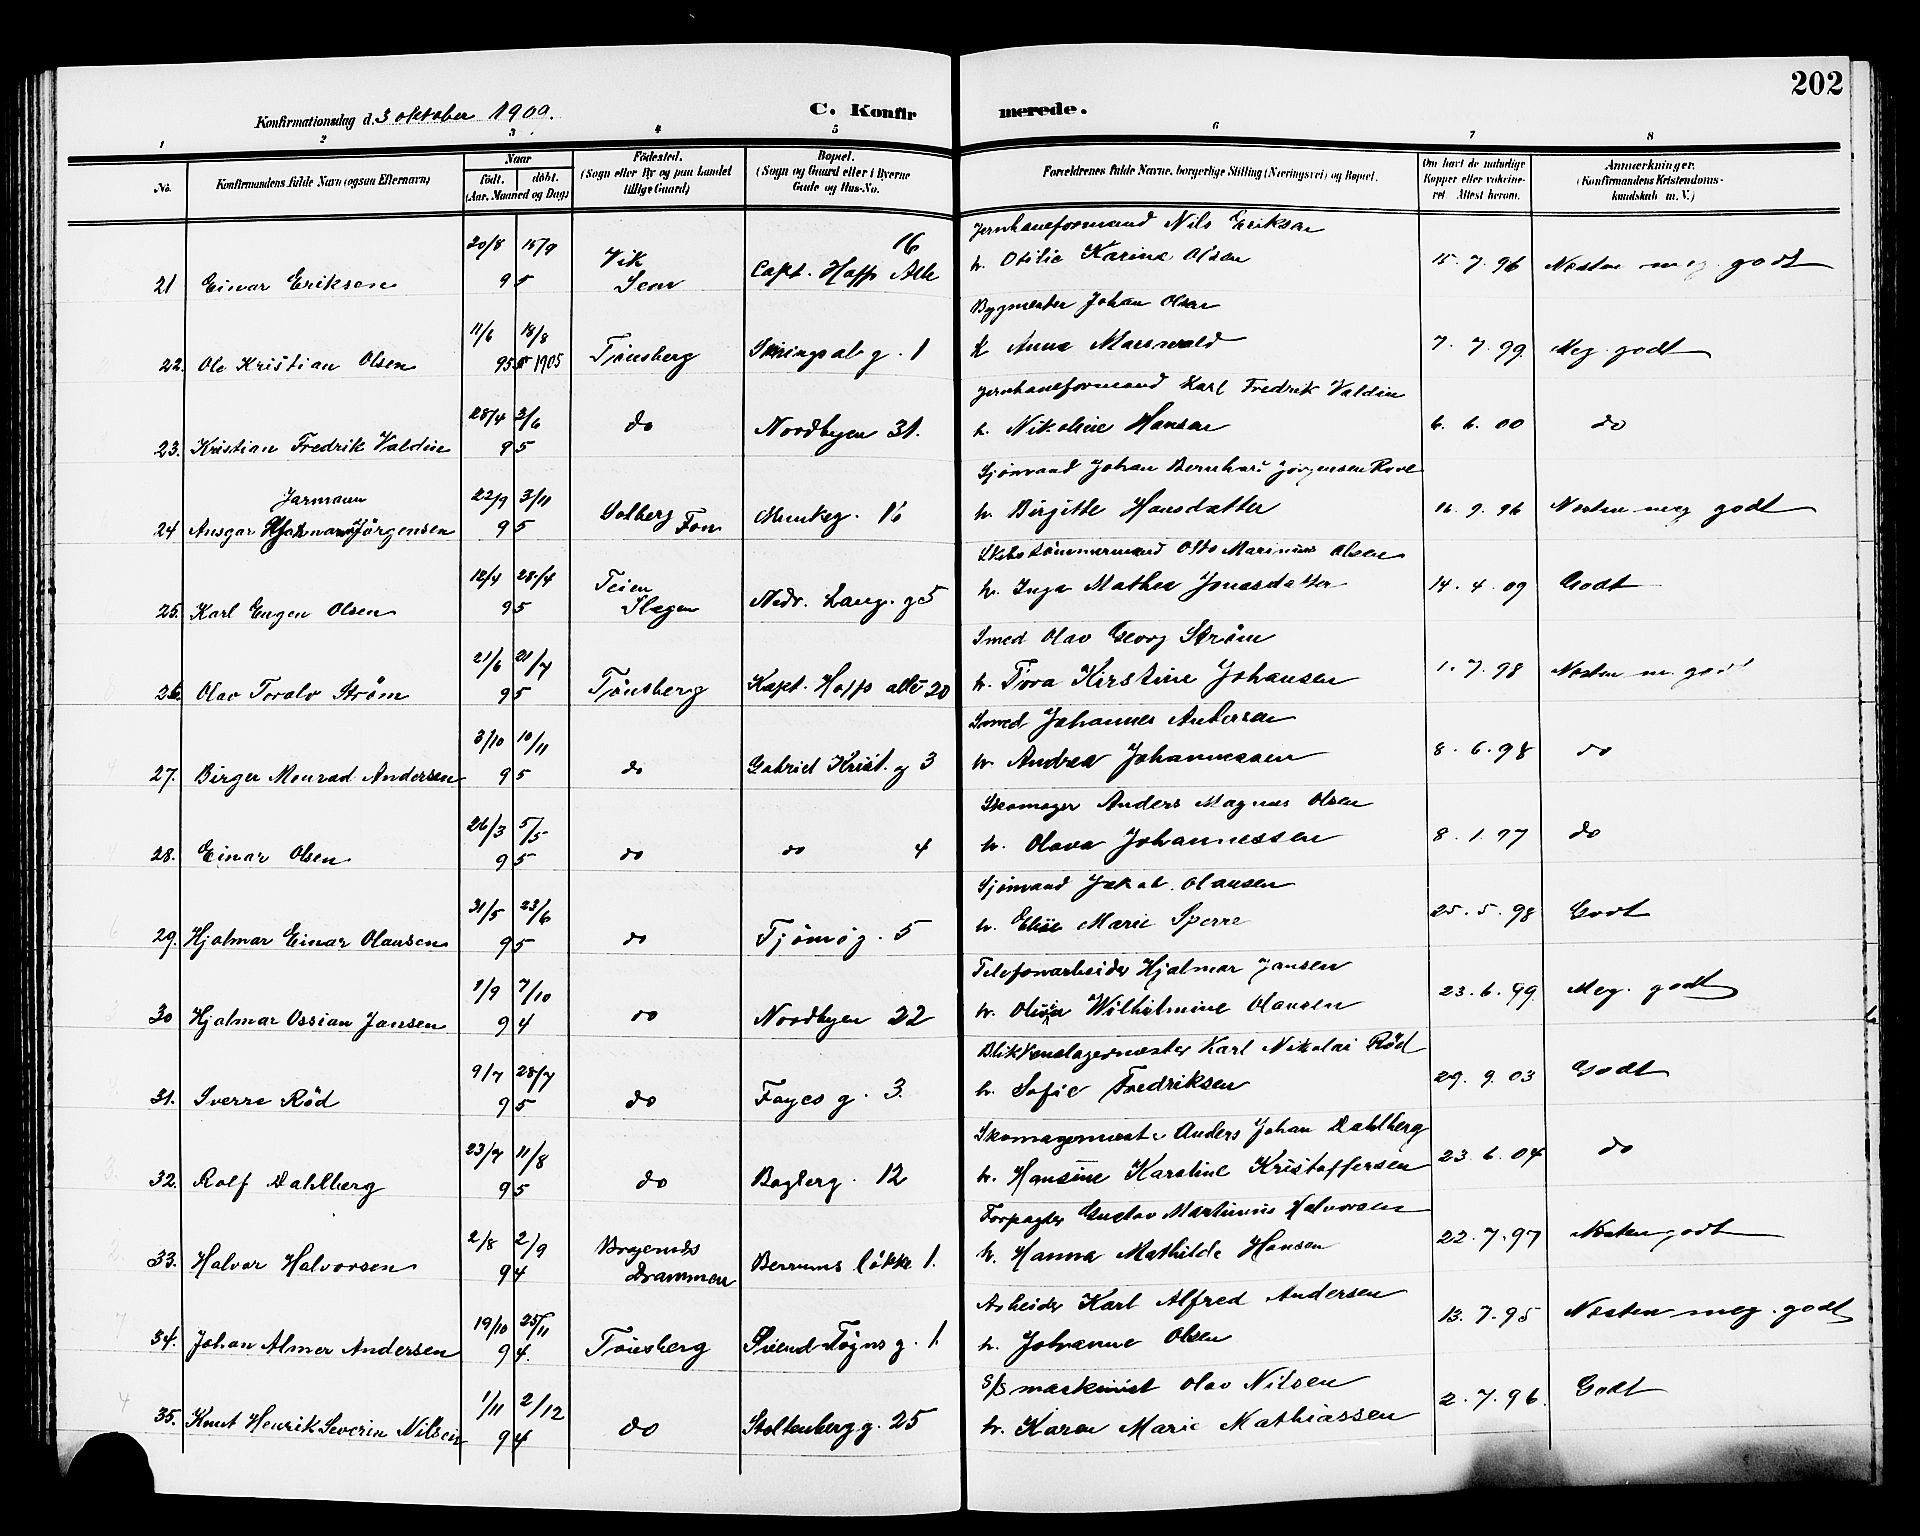 202
Konfirmationsdag d. 3 oktober 1909.
C. Konfirmerede.
1 2 3 4 5 6 7 8
No.
Konfirmandens fulde Navn (ogsaa Efternavn)
Naar
födt. döbt.
(Aar, Maaned og Dag)
Födested.
(Sogn eller By og paa Landet tillige Gaard)
Bopæl.
(Sogn og Gaard eller i Byerne Gade og Hus-No.
Forældrenes fulde Navne, borgerlige Stilling (Næringsvei) og Bopæl.
Om havt de naturlige Kopper eller vaccineret. Attest herom.
Anmærkninger.
(Konfirmandens Kristendomskundskab m. V.)
20/8 15/9 Vik 16 Jernbaneformand Nils Eriksen
21 Einar Eriksen 95 Sem Capt. Hoffs Alle h. Otilie Karine Olsen 15. 7. 96 Næsten meg. godt
11/6 18/8 Bygmester Johan Olsen
22. Ole Kristian Olsen 95 1905 Tönsberg 1 h Anna 7. 7. 99 Meg. godt
28/4 3/6 Jernbaneformand Karl Fredrik Valdin
23. Kristian Fredrik Valdin 95 do Nordbyen 31. h. Nikoline Hansen 6. 6. 00 do
Jarmann 22/9 3/11 Sjömand Johan Bernhard Jörgensen
24 Ansgar Jörgensen 95 Solberg Fon Munkeg. 16 h. Birgitte Hansdatter 16. 9. 96 Næsten meg godt
12/4 28/4 Teien Skibstömmermand Otto Marinius Olsen
25. Karl Eugen Olsen 95 Slagen Nedr. Lang. g 5 h. Inga Mathea Jonasdatter 14. 4. 09 Godt
21/6 21/7 Smed Olav Georg Ström
26. Olav Toralv Ström 95 Tjönsberg Kapt. Hoffs alle 20 h. Tora Kirstine Johansen 1. 7. 98 Næsten m. godt
3/10 10/11 Smed Johannes Andersen
27. Birger Monrad Andersen 95 do Gabriel Krist. g 3 h. Andrea Johannessen 8. 6. 98 do
26/3 5/5 Skomager Anders Magnus Olsen
28. Einar Olsen 95 do do 4 h. Olava Johannessen 8. 1. 97 do
31/5 23/6 Sjömand Jakob Olausen
29. Hjalmar Einar Olausen 95 do Tjömög. 5 h. Elise Marie Sperre 25. 5. 98 Godt
1/9 7/10 Telefonarbeider Hjalmar Jansen
30 Hjalmar Ossian Jansen 94 do Nordbyen 22 h. Olivia Wilhelmine Olausen 23. 6. 99 Meg. godt
9/7 28/7 Blikkenslagermester Karl Nikolai Röd
31. Sverre Röd 95 do Fayes g. 3. h. Sofie Fredriksen 29. 9. 03 Godt
23/7 11/8 Skomagermest. Anders Johan Dahlberg
32. Rolf Dahlberg 95 do Baglerg. 12 h. Hansine Karoline Kristoffersen 23. 6. 04 do
2/8 2/9 Bragernes Forpagter Gustav Martinius Halvorsen
33. Halvor Halvorsen 94 Drammen Berrums lökke 1. h. Hanna Mathilde Hansen 22. 7. 97 Næsten godt
19/10 25/11 Arbeider Karl Alfred Andersen
34. Johan Almer Andersen 94. Tönsberg Svend Föyns g. 1. h. Johanne Olsen 13. 7. 95 Næsten meg. godt
1/11 2/12 S/S maskinist Olav Nilsen
35. Knut Henrik Severin Nilsen 94 do Stoltenbergg. 25 h. Karen Marie Mathiassen 2. 7. 96. Godt